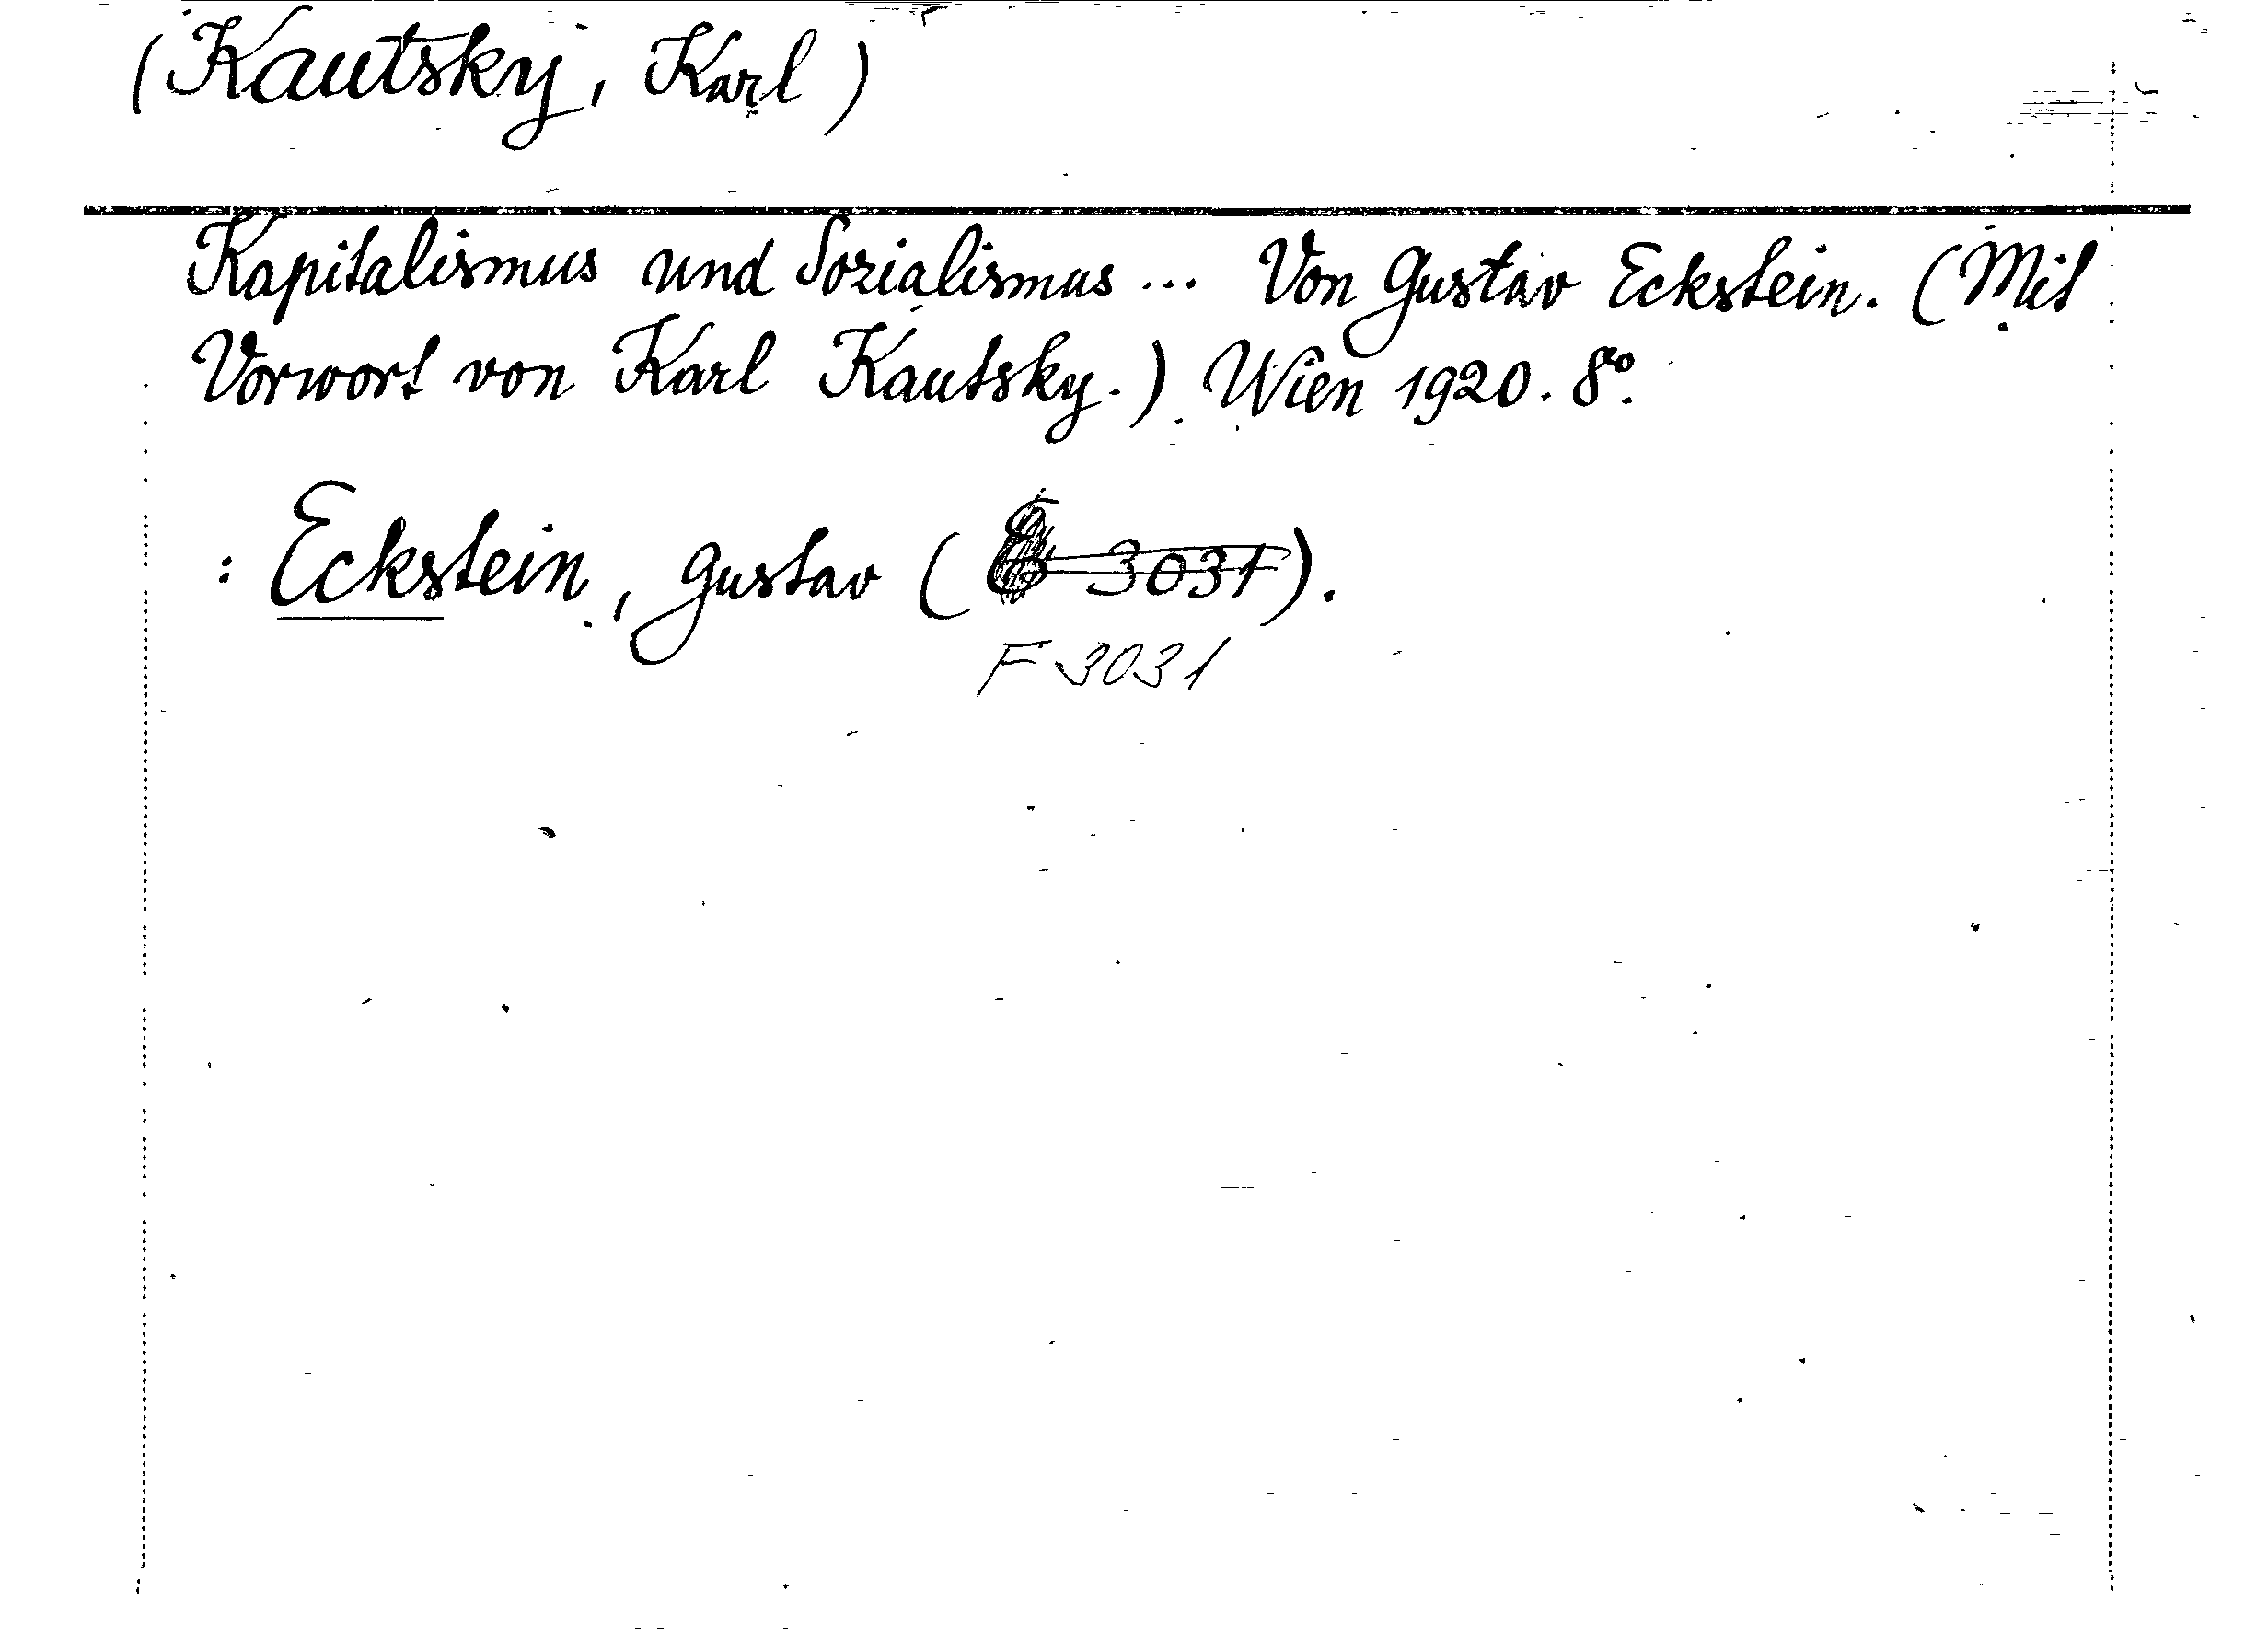 (Kautsky, Karl)
Kapitalismus und Sozialismus ... Von Gustav Eckstein. (Mit
Vorwort von Karl Kautsky.) Wien 1920. 8°.
: Eckstein, Gustav ( 3031).
F 3031